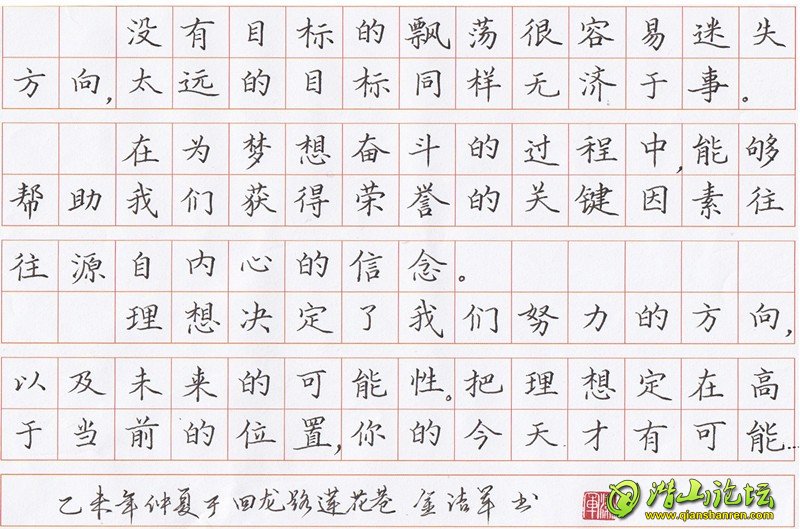 没有目标的飘荡很容易迷失
方向,太远的目标同样无济于事。
在为梦想奋斗的过程中,能够
帮助我们获得荣誉的关键因素往
往源自内心的信念。
理想决定了我们努力的方向,
以及未来的可能性。把理想定在高
于当前的位置,你的今天才有可能…
乙未年仲夏于回龙路莲花巷 金洁军书
潜山论坛
www.qianshanren.com